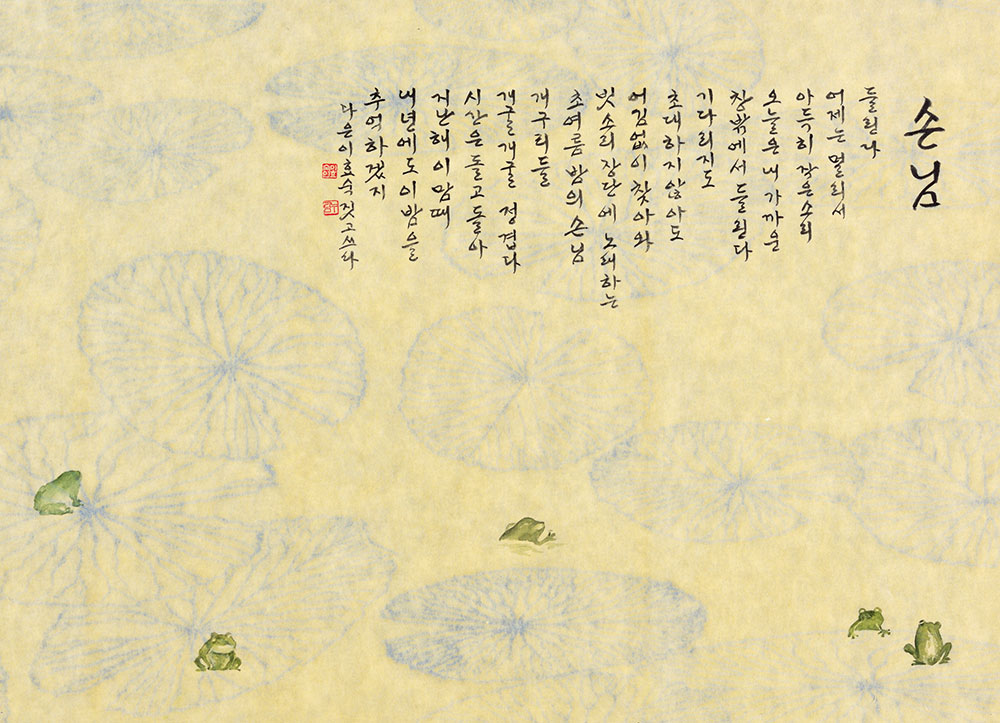 손님
들린다
어제는 멀리서
아득히 작은소리
오늘은 내 가까운
창밖에서 들린다
기다리지도
초대하지않아도
어김없이 찾아와
빗소리 장단에 노래하는
초여름 밤의 손님
개구리들
개굴개굴 정겹다
시간은 돌고 돌아
지난해 이맘때
내년에도 이밤을
추억하겠지
다은이효숙 짓고쓰다